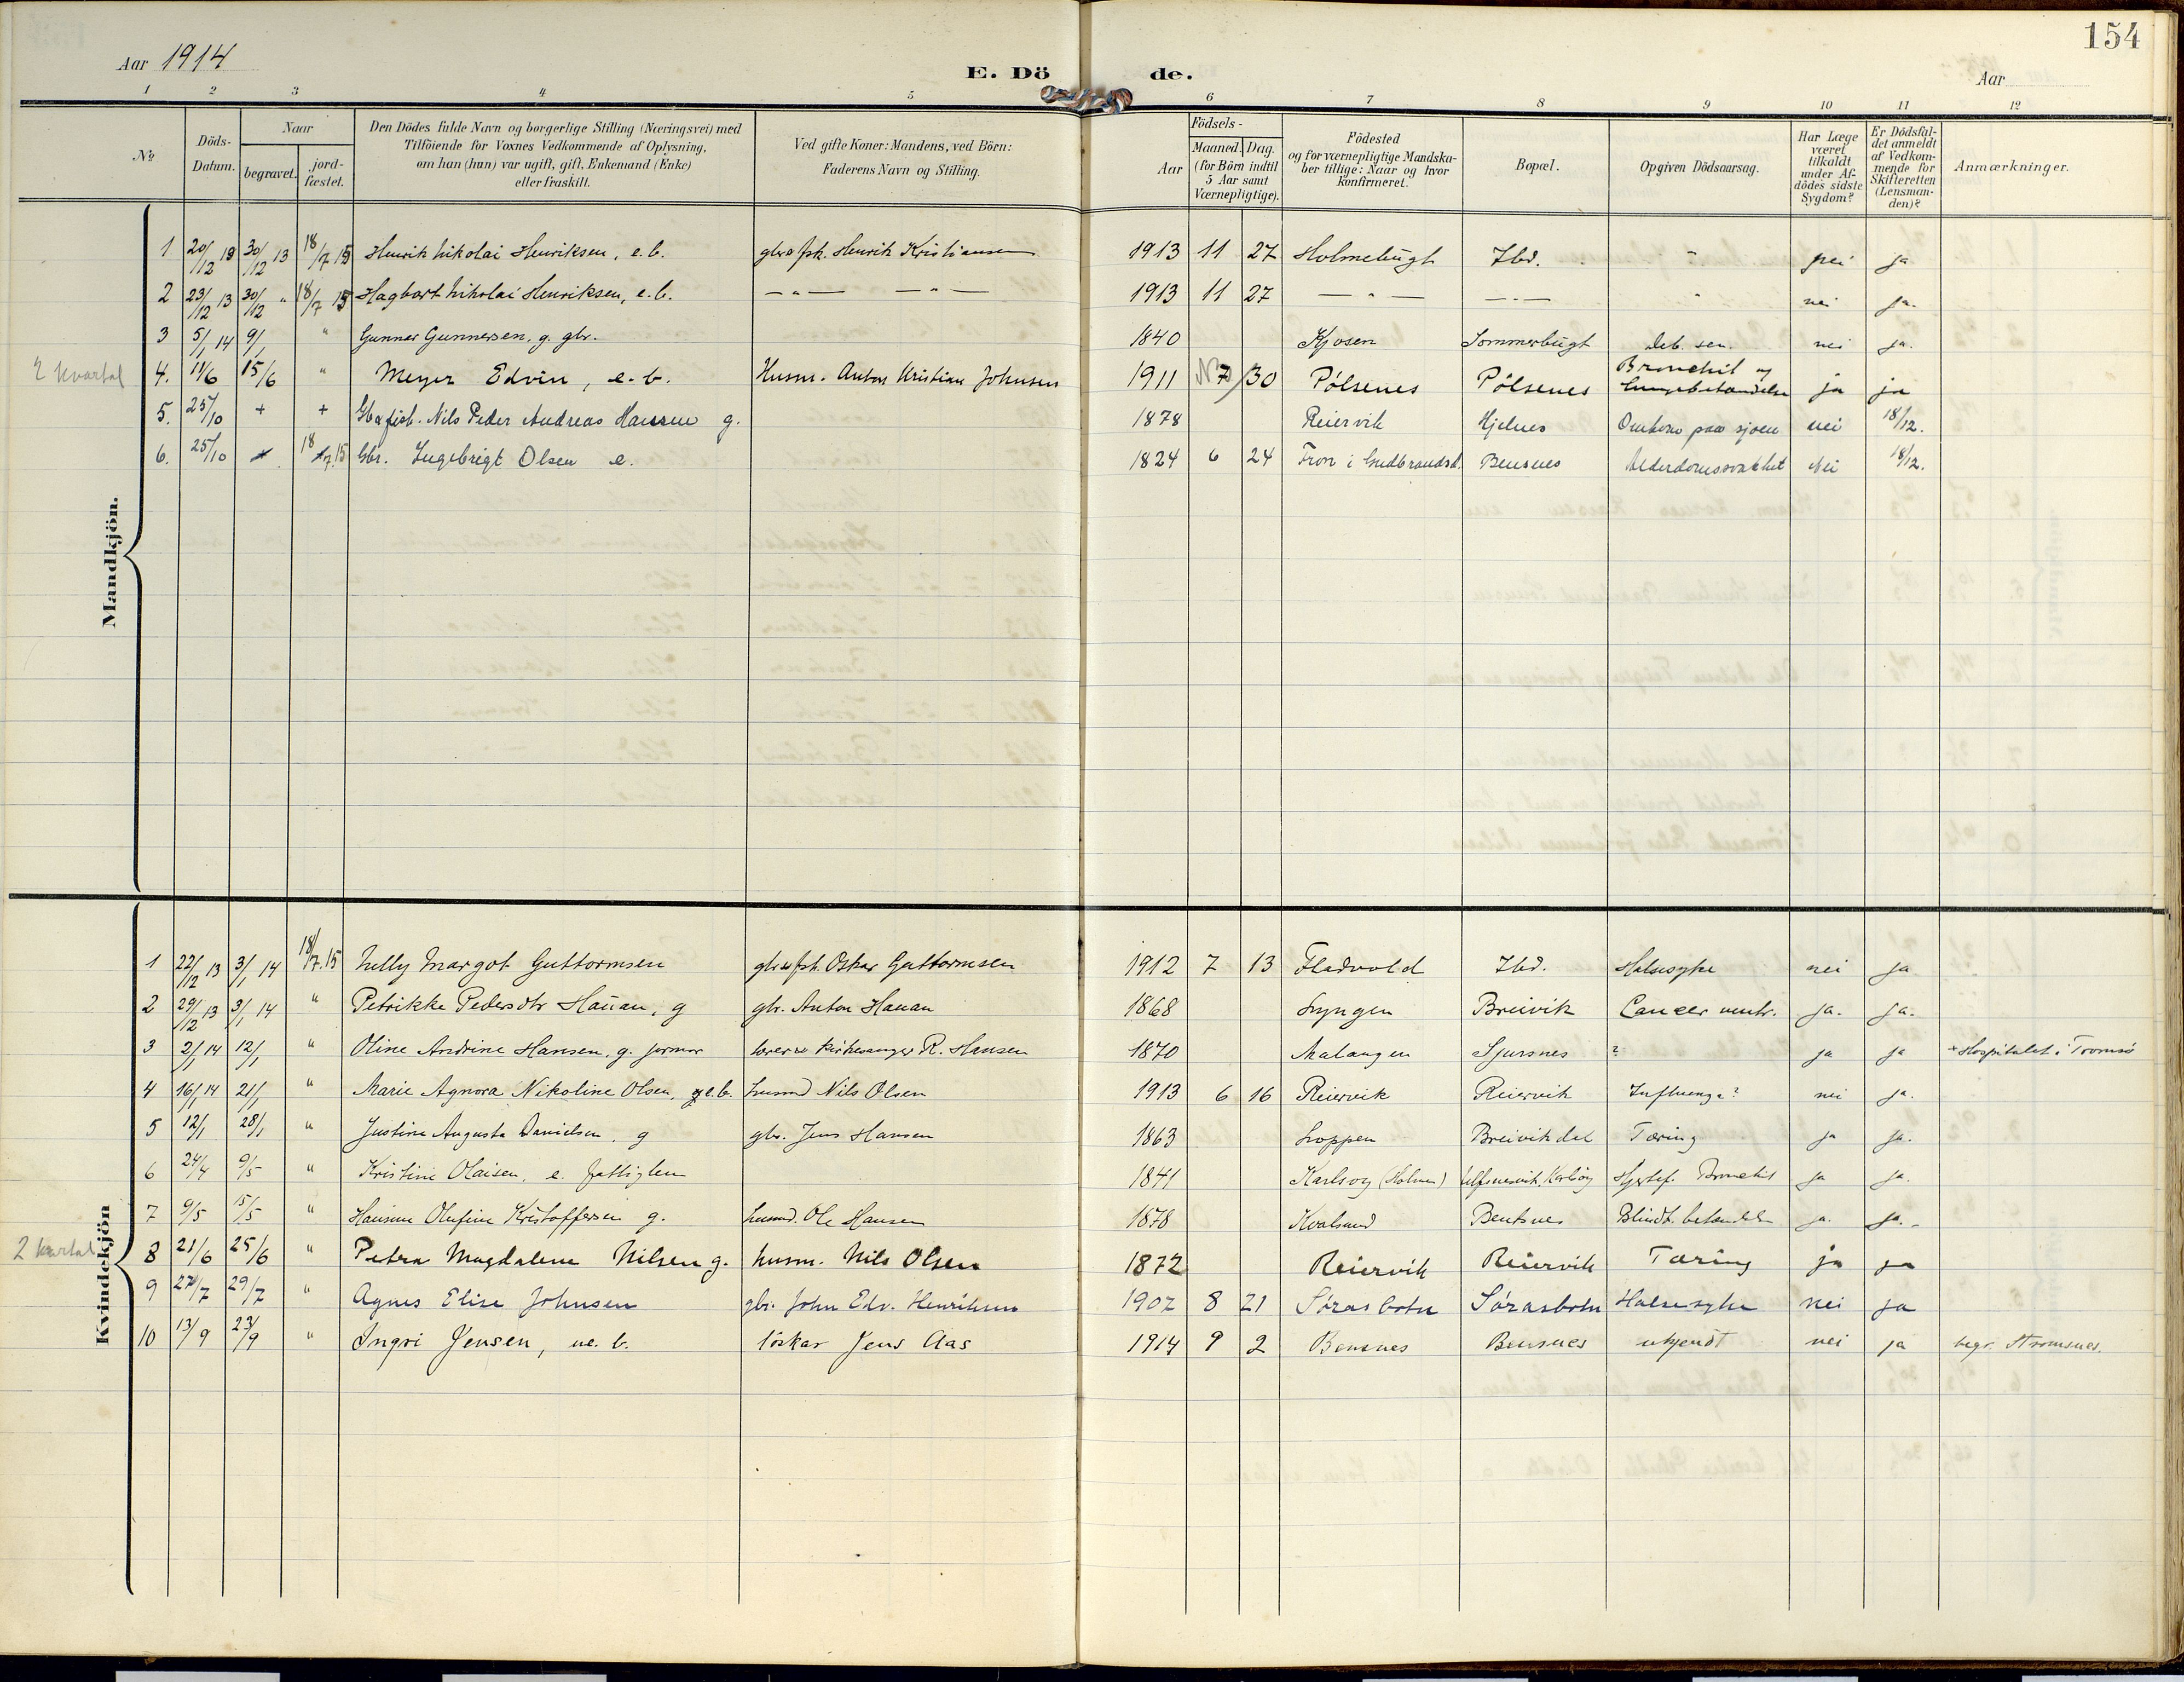 154
Aar 1914 E. Dö de. Aar
1 2 3 4 5 6 7 8 9 10 11 12
No
Döds-Datum.
Naar
begravet.
jord-fæstet.
Den Dödes fulde Navn og borgerlige Stilling (Næringsvei) med
Tilföiende for Voxnes Vedkommende af Oplysning,
om han (hun) var ugift, gift, Enkemand (Enke)
eller fraskilt.
Ved gifte Koner: Mandens, ved Börn:
Faderens Navn og Stilling.
Födsels-
Aar
Maaned. Dag.
(for Börn indtil
5 Aar samt
Værnepligtige).
Födested
og for værnepligtige Mandska-
ber tillige: Naar og hvor
konfirmeret.
Bopæl.
Opgiven Dödsaarsag.
Har Læge
været
tilkaldt
under Af-
dödes sidste
Sygdom?
Er Dödsfal-
det anmeldt
af Vedkom-
mende for
Skifteretten
(Lensman-
den)?
Anmærkninger.
Mandkjön.
1 20/12 13 30/12 13 18/7 15 Henrik Nikolai Henriksen, e.b. gbr. o fsk. Henrik Kristiansen 1913 11 27 Holmebugt Ibd. " nei ja
2 23/12 13 30/12 " 18/7 15 Hagbart Nikolai Henriksen, e.b. — " — — " — 1913 11 27 — " — — " — " nei ja.
3 5/1 14 9/1 " Gunnar Gunnersen, g. gbr. 1840 Kjosen Sommerbugt deb. sen. nei ja.
2 kvartal 4. 11/6 15/6 " Meyer Edvin, e.b. Husm. Anton Kristian Johnsen 1911 7 30 Pölsenes Pölsenes Bronchit og lungebetændelse ja ja
5. 25/10 + + Gbr fisk. Nils Peder Andreas Hansen g. 1878 Reiervik Hjelnes Omkom paa sjöen nei 18/12.
6. 25/10 18/7.15 Gbr. Ingebrigt Olsen e. 1824 6 24 Fron i Gudbrandsd. Bensnes Alderdomssvakhet Nei 18/12.
Kvindekjön
1 22/12 13 3/1 14 18/7.15 Nelly Margot Guttormsen gbr. o fsk. Oskar Guttormsen 1912 7 13 Fladvold Ibd. Halssyke nei ja
2 29/12 13 3/1 14 " Petrikke Pedersdtr Hauan, g gbr. Anton Hauan 1868 Lyngen Breivik Cancer ventr. ja. ja.
3 2/1 14 12/1 " Oline Andrine Hansen, g. jormor lærer o kirkesanger R. Hansen 1870 Malangen Sjursnes ? ja ja + Hospitalet i Tromsö
4 16/1 14 21/1 " Marie Agnora Nikoline Olsen, e.b. husmd Nils Olsen 1913 6 16 Reiervik Reiervik Influenza? nei ja.
5 12/1 28/1 " Justine Augusta Danielsen, g gbr. Jens Hansen 1863 Loppen Breivikdal Tæring ja ja.
6 24/4 9/5 " Kristine Olaisen, e. fattiglem 1841 Karlsoy (Holmen) Karlsöy Hjertef. Bronchit ja ja.
7 9/5 15/5 " Hansine Olufine Kristoffersen g. husmd. Ole Hansen 1878 Kvalsund Bentsnes Blindt. betændelse ja. ja.
2 kvartal 8 21/6 25/6 " Petra Magdalene Nilsen g. husm. Nils Olsen 1872 Reiervik Reiervik Tæring ja ja
9 27/7 29/7 " Agnes Elise Johnsen gbr. John Edv. Henriksen 1907 8 21 Sörasbotn Sörasbotn Halsesyke nei ja
10 13/9 23/9 " Ingri Jensen, ue. b. löskar Jens Aas 1914 9 2 Bensnes Bensnes ukjendt nei ja begr. Stromsnes.